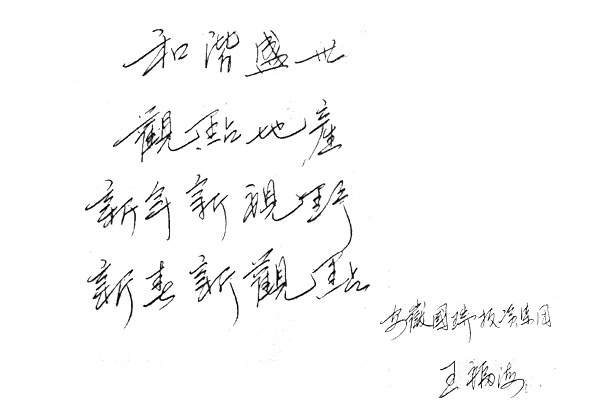 和谐盛世
觀點地產
新年新視野
新春新觀點
安徽國瑞投资集团
王福